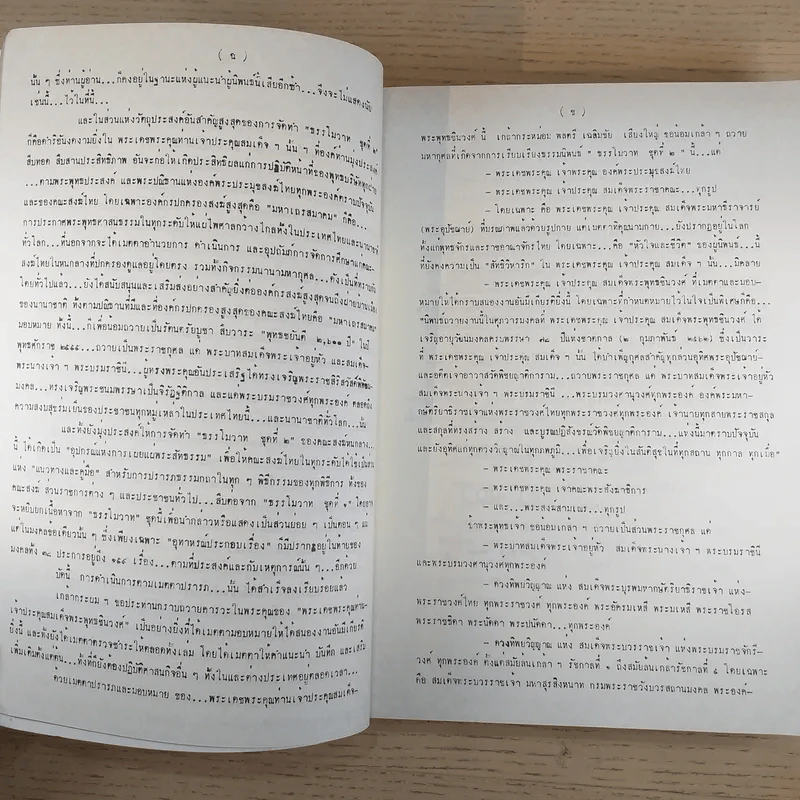 ( ฉ )
นั้น ๆ ซึ่งท่านผู้อ่าน...ก็คงอยู่ในฐานะแห่งผู้แนะนำผู้นิพนธ์นี้เสียอีกซ้ำ...จึงจะไม่แสดงนัย
เช่นนี้...ไว้ในที่นี้...
และในส่วนแห่งวัตถุประสงค์อันสำคัญสูงสุดของการจัดทำ "ธรรโมวาท ชุดที่ ๒"
ก็คือดำริอันงดงามยิ่งใน พระเดชพระคุณท่านเจ้าประคุณสมเด็จ ฯ นั้น ๆ ที่องค์ท่านมุ่งประสงค์
สืบทอด สืบสานประสิทธิภาพ อันจะก่อให้เกิดประสิทธิผลแก่การปฏิบัติหน้าที่ของพุทธบริษัททุกฝ่าย
...ตามพระพุทธประสงค์ และพระปณิธานแห่งองค์พระประมุขสงฆ์ไทยทุกพระองค์ตราบปัจจุบัน
และของคณะสงฆ์ไทย โดยเฉพาะองค์กรปกครองสงฆ์สูงสุดคือ "มหาเถรสมาคม" ก็คือ...
การประกาศพระพุทธศาสนธรรมในทุกระดับให้แผ่ไพศาลกว้างไกลทั้งในประเทศไทยและนานาชาติ
ทั่วโลก...ที่นอกจากจะได้เมตตาอำนวยการ ดำเนินการ และอุปถัมภ์การจัดการศึกษาแก่คณะ
สงฆ์ไทยในหนกลางที่ปกครองดูแลอยู่โดยตรง รวมทั้งกิจกรรมนานามหากุศล...ดังเป็นที่ทราบกัน
โดยทั่วไปแล้ว...ยังได้สนับสนุนและเสริมสองอย่างสำคัญยิ่งต่อองค์กรสงฆ์สูงสุดจนถึงฝ่ายบ้านเมือง
ของนานาชาติ ทั้งตามปณิธานที่มีและที่องค์กรปกครองสูงสุดของคณะสงฆ์ไทยคือ "มหาเถรสมาคม"
มอบหมาย ทั้งนี้...ก็เพื่อน้อมถวายเป็นรัตนตรัยบูชา สืบวาระ "พุทธชยันตี ๒,๖๐๐ ปี" ในปี
พุทธศักราช ๒๕๕๕...ถวายเป็นพระราชกุศล แด่ พระบาทสมเด็จพระเจ้าอยู่หัว และสมเด็จ-
พระนางเจ้า ฯ พระบรมราชินี...ผู้ทรงพระคุณอันประเสริฐได้ทรงเจริญพระราชสิริสวัสดิพิพัฒ
มงคล...ทรงเจริญพระชนมพรรษาเป็นจิรัฏฐิติกาล และแด่พระบรมราชวงศ์ทุกพระองค์ ตลอดถึง
ความสงบสุขร่มเย็นของประชาชนทุกหมู่เหล่าในประเทศไทยนี้...และนานาชาติทั่วโลก...นั้น
และทั้งยังมุ่งประสงค์ให้การจัดทำ "ธรรโมวาท ชุดที่ ๒" ของคณะสงฆ์หนกลาง...
นี้ ได้เกิดเป็น "อุปกรณ์แห่งการเผยแผ่พระสัทธรรม" เพื่อให้คณะสงฆ์ไทยในทุกระดับได้ใช้เป็นดัง
แห่ง "แนวทางและคู่มือ" สำหรับการปรารภธรรมกถาในทุก ๆ พิธีกรรมของทุกพิธีการ ทั้งของ
คณะสงฆ์ ส่วนราชการต่าง ๆ และประชาชนทั่วไป...สืบต่อจาก "ธรรโมวาท ชุดที่ ๑" โดยอาจ
จะหยิบยกเนื้อหาจาก "ธรรโมวาท" ชุดนี้เพื่อนำกล่าวหรือแสดงเป็นส่วนย่อย ๆ เป็นตอน ๆ แม้
แต่ในมงคลข้อเดียวนั้น ๆ ซึ่งเพียงเฉพาะ "อุทาหรณ์ประกอบเรื่อง" ก็มีปรากฏอยู่ในท้ายของ
มงคลทั้ง ๓๘ ประการอยู่ถึง ๑๕๔ เรื่อง...ตามที่ประสงค์และกับเหตุการณ์นั้น ๆ...อีกด้วย
บัดนี้ การดำเนินการตามเมตตาปรารภ...นั้น ได้สำเร็จลงเรียบร้อยแล้ว
เกล้ากระผม ฯ ขอประทานกราบถวายคารวะในพระคุณของ "พระเดชพระคุณท่าน-
เจ้าประคุณสมเด็จพระพุทธชินวงศ์" เป็นอย่างยิ่งที่ได้เมตตามอบหมายให้ได้สนองงานอันมีเกียรติ
ยิ่งนี้ และทั้งยังได้เมตตาตรวจชำระให้ตลอดทั้งเล่ม โดยได้เมตตาให้คำแนะนำ บันทึก และเสริม
เพิ่มเติมตั้งแต่ต้น...ทั้งที่ก็ยังคงปฏิบัติศาสนกิจอื่น ๆ ทั้งในและต่างประเทศอยู่ตลอดเวลา...
ด้วยเมตตาปรารภและมอบหมาย ของ...พระเดชพระคุณท่านเจ้าประคุณสมเด็จ-
( ช )
พระพุทธชินวงศ์ นี้ เกล้ากระหม่อม พลตรี เฉลิมชัย เสียงใหญ่ ขอน้อมเกล้า ฯ ถวาย
มหากุศลที่เกิดจากการเรียบเรียงธรรมนิพนธ์ " ธรรโมวาท ชุดที่ ๒ " นี้...แด่
- พระเดชพระคุณ เจ้าพระคุณ องค์พระประมุขสงฆ์ไทย
- พระเดชพระคุณ เจ้าประคุณ สมเด็จพระราชาคณะ...ทุกรูป
- โดยเฉพาะ คือ พระเดชพระคุณ เจ้าประคุณ สมเด็จพระมหาธีราจารย์
(พระอุปัชฌาย์) ที่มรณภาพแล้วด้วยรูปกาย แต่เมตตาคุณนานากาย...ยังปรากฏอยู่ในโลก
ทั้งแก่พุทธจักรและราชอาณาจักรไทย โดยเฉพาะ...คือ "หัวใจและชีวิต" ของผู้นิพนธ์...นี้
ที่ยังคงความเป็น "สัทธิวิหาริก" ใน พระเดชพระคุณ เจ้าประคุณ สมเด็จ ฯ นั้น...มิคลาย
- พระเดชพระคุณ เจ้าประคุณ สมเด็จพระพุทธชินวงศ์ ที่เมตตาและมอบ-
หมายให้ได้กราบสนองงานอันมีเกียรติยิ่งนี้ โดยเฉพาะที่กำหนดหมายไว้ในใจเป็นพิเศษก็คือ...
"นิพนธ์ถวายงานนี้ในศุภวารมงคลที่ พระเดชพระคุณ เจ้าประคุณ สมเด็จพระพุทธชินวงศ์ ได้
เจริญอายุวัฒนมงคลครบพรรษา ๗๘ ปีแห่งชาตกาล (๒ กุมภาพันธ์ ๒๕๖๒) ซึ่งเป็นวาระ
ที่ พระเดชพระคุณ เจ้าประคุณ สมเด็จ ฯ นั้น ได้บำเพ็ญกุศลสำคัญทุกส่วนอุทิศพระอุปัชฌาย์-
และอดีตเจ้าอาวาสวัดพิชยญาติการาม...ถวายพระราชกุศล แด่ พระบาทสมเด็จพระเจ้าอยู่หัว
สมเด็จพระนางเจ้า ฯ พระบรมราชินี ...พระบรมวงศานุวงศ์ทุกพระองค์ องค์พระมหา-
กษัตริยาธิราชเจ้าแห่งพระราชวงศ์ไทยทุกพระราชวงศ์ทุกพระองค์ เจ้านายทุกสายพระราชสกุล
และสกุลที่ทรงสร้าง สร้าง และบูรณปฏิสังขรณ์วัดพิชยญาติการาม...แห่งนี้มาตราบปัจจุบัน
และยังอุทิศแก่ทุกดวงวิญญาณในทุกภพภูมิ...เพื่อเจริญยิ่งในสันติสุขในที่ทุกสถาน ทุกกาล ทุกเมื่อ"
- พระเดชพระคุณ พระราชาคณะ
- พระเดชพระคุณ เจ้าคณะพระสังฆาธิการ
- และ...พระสงฆ์สามเณร...ทุกรูป
ข้าพระพุทธเจ้า ขอน้อมเกล้า ฯ ถวายเป็นส่วนพระราชกุศล แด่
- พระบาทสมเด็จพระเจ้าอยู่หัว สมเด็จพระนางเจ้า ฯ พระบรมราชินี
และพระบรมวงศานุวงศ์ทุกพระองค์
- ดวงทิพยวิญญาณ แห่ง สมเด็จพระบูรพมหากษัตริยาธิราชเจ้า แห่ง-
พระราชวงศ์ไทย ทุกพระราชวงศ์ ทุกพระองค์ พระอัครมเหสี พระมเหสี พระราชโอรส
พระราชธิดา พระนัดดา พระปนัดดา...ทุกพระองค์
- ดวงทิพยวิญญาณ แห่ง สมเด็จพระบวรราชเจ้า แห่งพระบรมราชจักรี-
วงศ์ ทุกพระองค์ ตั้งแต่สมัยล้นเกล้าฯ รัชกาลที่ ๑ ถึงสมัยล้นเกล้ารัชกาลที่ ๕ โดยเฉพาะ
คือ สมเด็จพระบวรราชเจ้า มหาสุรสิงหนาท กรมพระราชวังบวรสถานมงคล พระองค์-